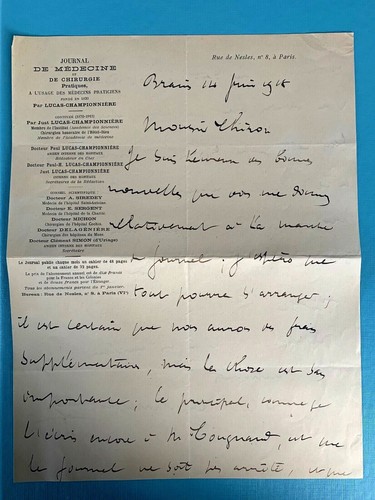 JOURNAL
DE MÉDECINE
ET
DE CHIRURGIE
Pratiques,
A L'USAGE DES MÉDECINS PRATICIENS
FONDÉ EN 1830
Par LUCAS-CHAMPIONNIÈRE
Par Just LUCAS-CHAMPIONNIÈRE
Membre de l'Institut (Académie des Sciences)
Chirurgien honoraire de l'Hôtel-Dieu
Membre de l'Académie de médecine
Docteur Paul LUCAS-CHAMPIONNIÈRE
ANCIEN INTERNE DES HOPITAUX
Rédacteur en Chef
Docteur Paul-H. LUCAS-CHAMPIONNIÈRE
Just LUCAS-CHAMPIONNIÈRE
INTERNE DES HOPITAUX
Secrétaires de la Rédaction
Docteur A. SIREDEY
Médecin de l'hôpital Saint-Antoine
Docteur E. SERGENT
Médecin de l'hôpital de la Charité
Docteur MICHON
Chirurgien de l'hôpital Cochin
Docteur DELAGÉNIÈRE
Chirurgien des hôpitaux du Mans
Docteur Clément SIMON
ANCIEN INTERNE DES HOPITAUX
Le Journal publie chaque mois un cahier de 48 pages
et un cahier de 32 pages.
Le prix de l'abonnement annuel est de
pour la France et les Colonies
et de pour l'Étranger.
Tous les abonnements partent du 1er janvier.
Bureau : Rue de Nesles, n° 8, à Paris (VIe)
Rue de Nesles, n° 8, à Paris.
14 juin
Monsieur
Je suis heureux des bonnes
nouvelles que vous me donnez
relativement à la marche
journal ; j'espère que
tout pourra s'arranger ;
il est certain que nous aurons des frais
supplémentaires, mais la chose est sans
importance ; le principal, comme je
l'écris encore à Mr est que
le journal ne soit pas arrêté, et que